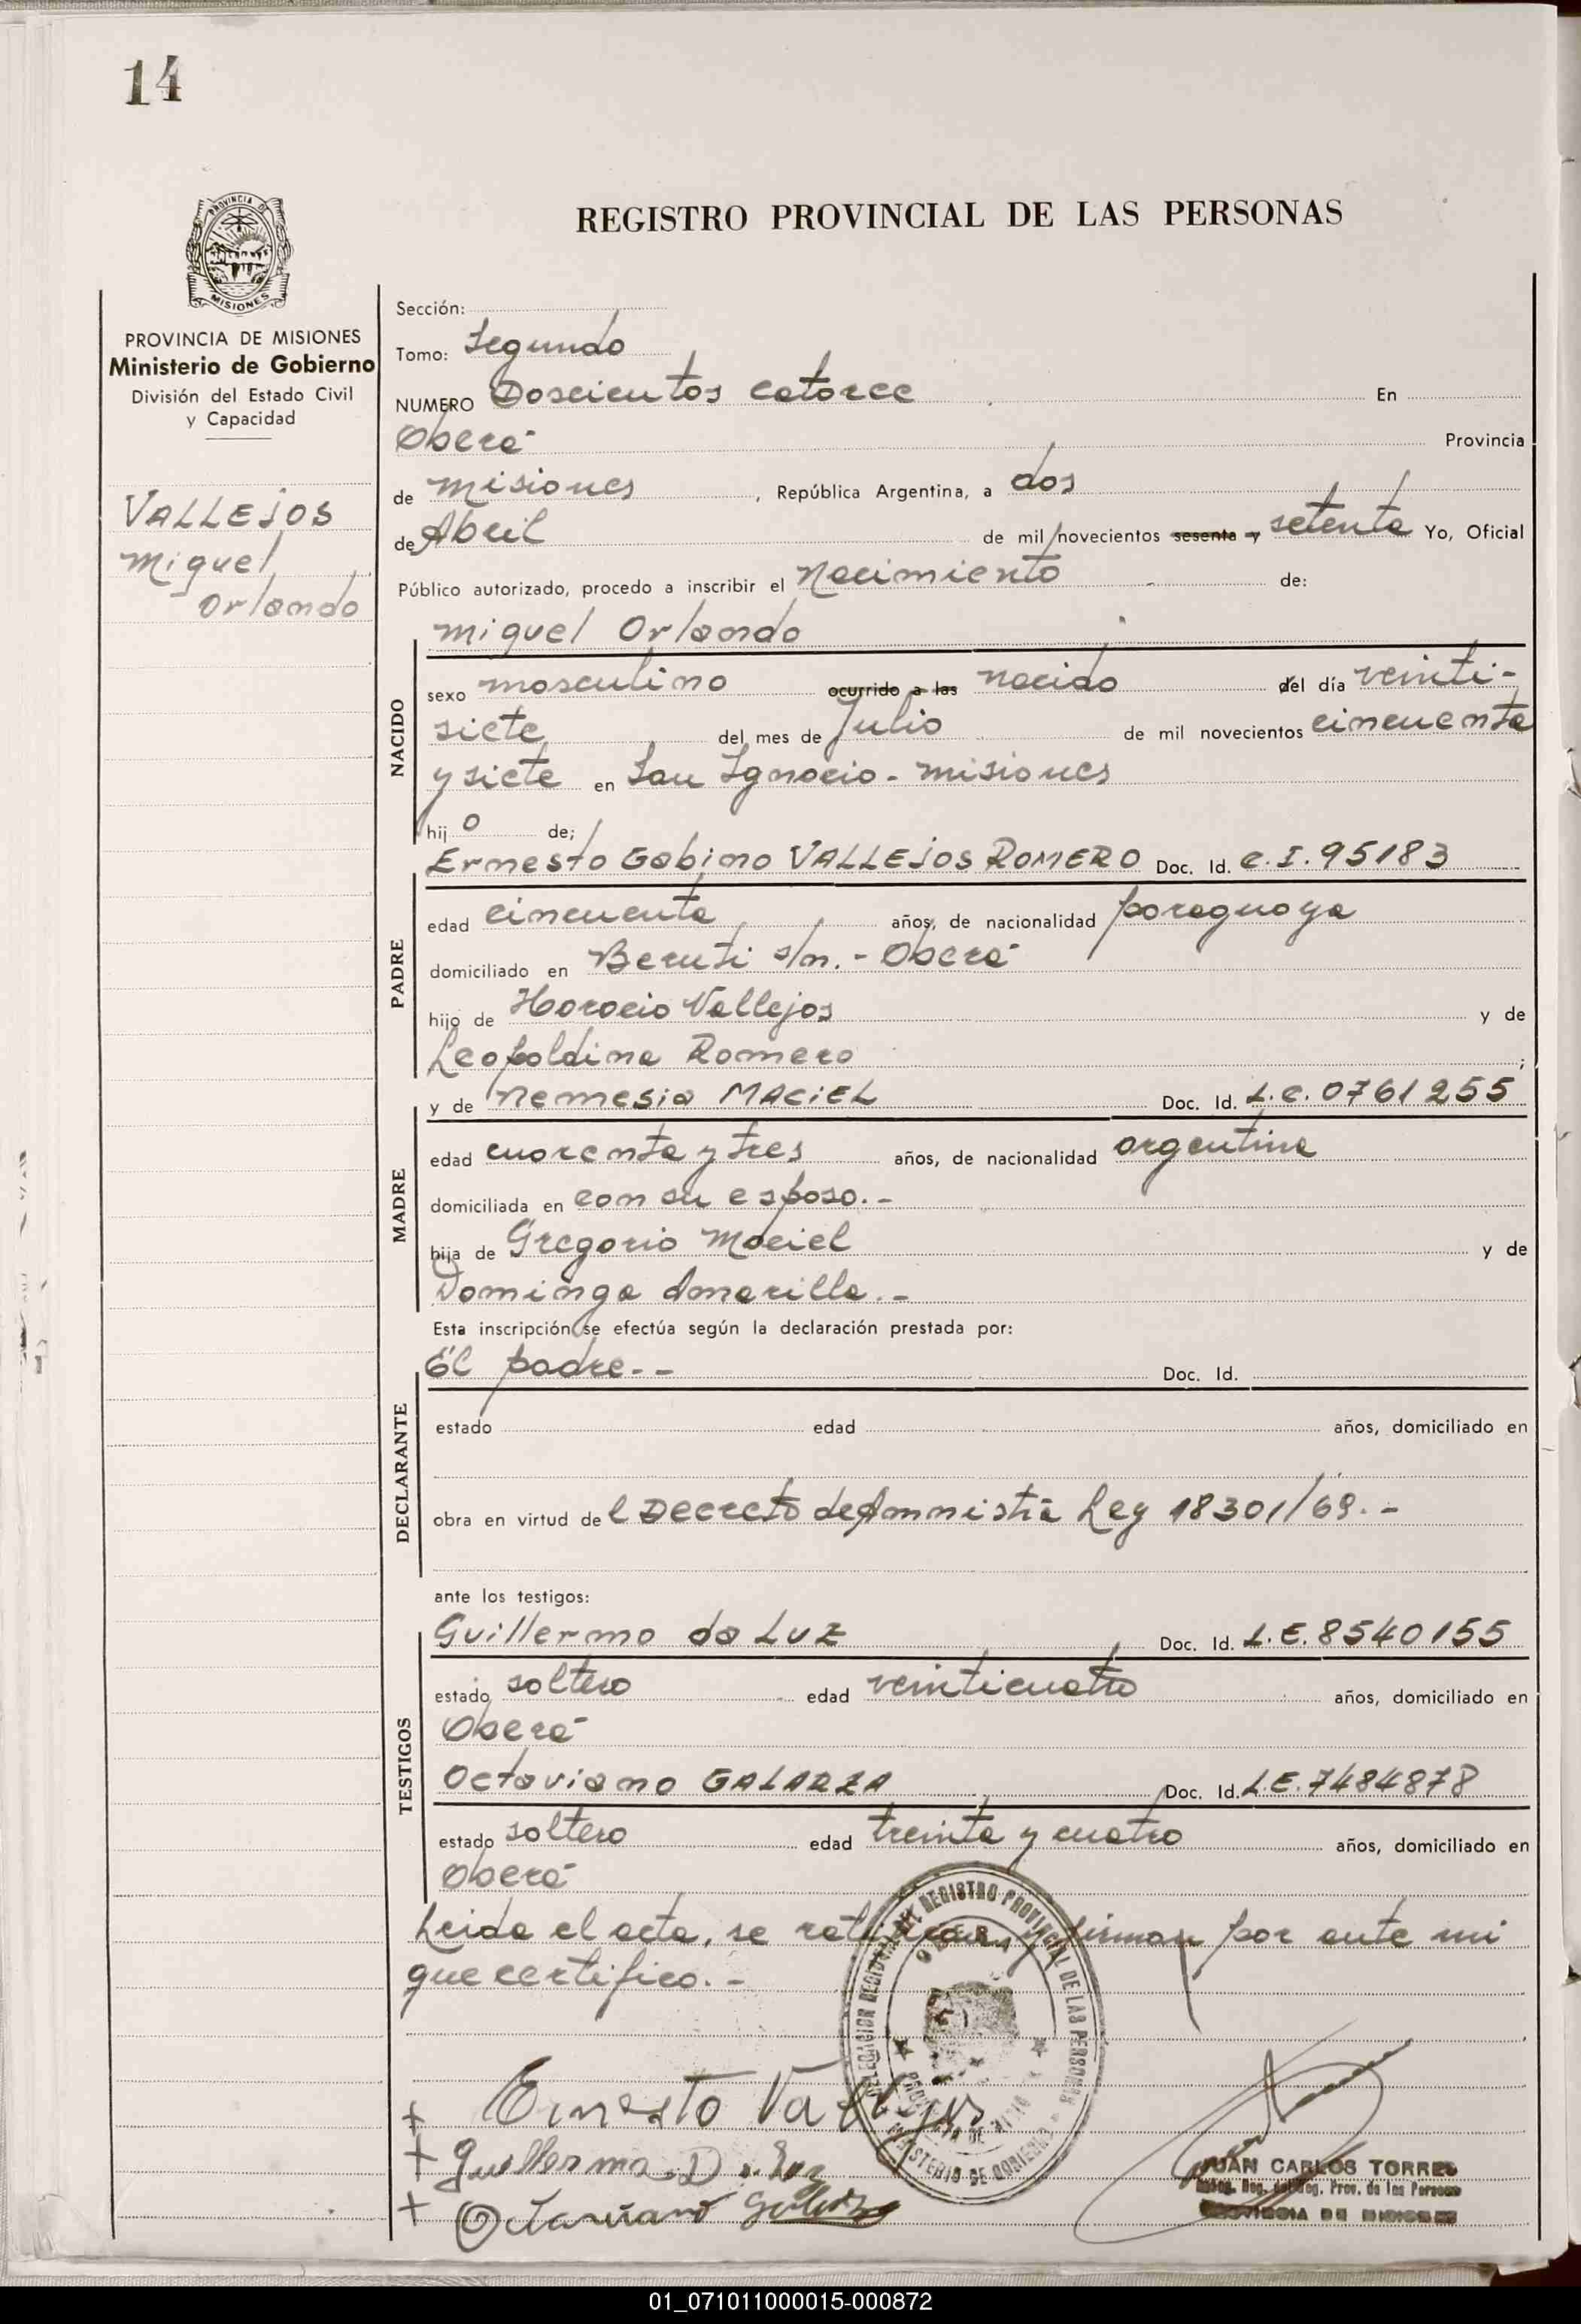 14
PROVINCIA DE MISIONES
REGISTRO PROVINCIAL DE LAS PERSONAS
PROVINCIA DE MISIONES
Ministerio de Gobierno
División del Estado Civil
y Capacidad
VALLEJOS
Miguel
Orlando
Sección:
Tomo: Segundo
NUMERO Doscientos catorce En
Oberá Provincia
de Misiones, República Argentina, a dos
de Abril de mil novecientos sesenta y setenta Yo, Oficial
Público autorizado, procedo a inscribir el Nacimiento de:
Miguel Orlando
NACIDO
sexo masculino ocurrido a las nacido del día veinti-
siete del mes de Julio de mil novecientos cincuenta
y siete en San Ignacio - Misiones
hijo de;
Ernesto Gabino VALLEJOS ROMERO Doc. Id. C.I. 95183
PADRE
edad cincuenta años, de nacionalidad paraguaya
domiciliado en Beruti s/n. - Oberá
hijo de Horacio Vallejos y de
Leopoldina Romero ;
y de Nemesia MACIEL Doc. Id. L.C. 0761255
MADRE
edad cuarenta y tres años, de nacionalidad argentina
domiciliada en con su esposo. -
hija de Gregorio Maciel y de
Dominga Amarilla. -
Esta inscripción se efectúa según la declaración prestada por:
El padre. - - Doc. Id.
DECLARANTE
estado edad años, domiciliado en
obra en virtud del Decreto de Amnistía Ley 18301/69. -
ante los testigos:
Guillermo da LUZ Doc. Id. L.E. 8540155
TESTIGOS
estado soltero edad veinticuatro años, domiciliado en
Oberá
Octaviano GALARZA Doc. Id. L.E. 7484878
estado soltero edad treinta y cuatro años, domiciliado en
Oberá
Leida el acta, se ratifican y firman por ante mi
que certifico. -
DELEGACION REGIONAL DEL REGISTRO PROVINCIAL DE LAS PERSONAS
OBERA
MINISTERIO DE GOBIERNO
+ Ernesto Vallejos
+ Guillermo D. Luz
+ Octaviano Galarza
JUAN CARLOS TORRES
Reg. Prov. de las Personas
PROVINCIA DE MISIONES
01_071011000015-000872